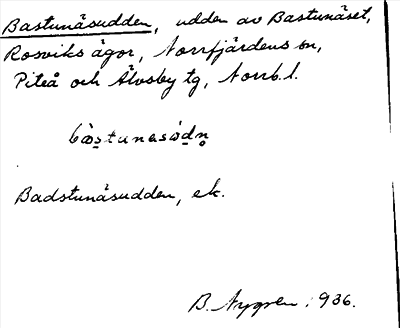 Bastunäsudden, udden av Bastunäset,
Rosviks ägor, Norrfjärdens sn,
Piteå och Älvsby tg, Norrb. l.
bàstunɛsùdn̥
Badstunäsudden, ek.
B. Nygren 1936.